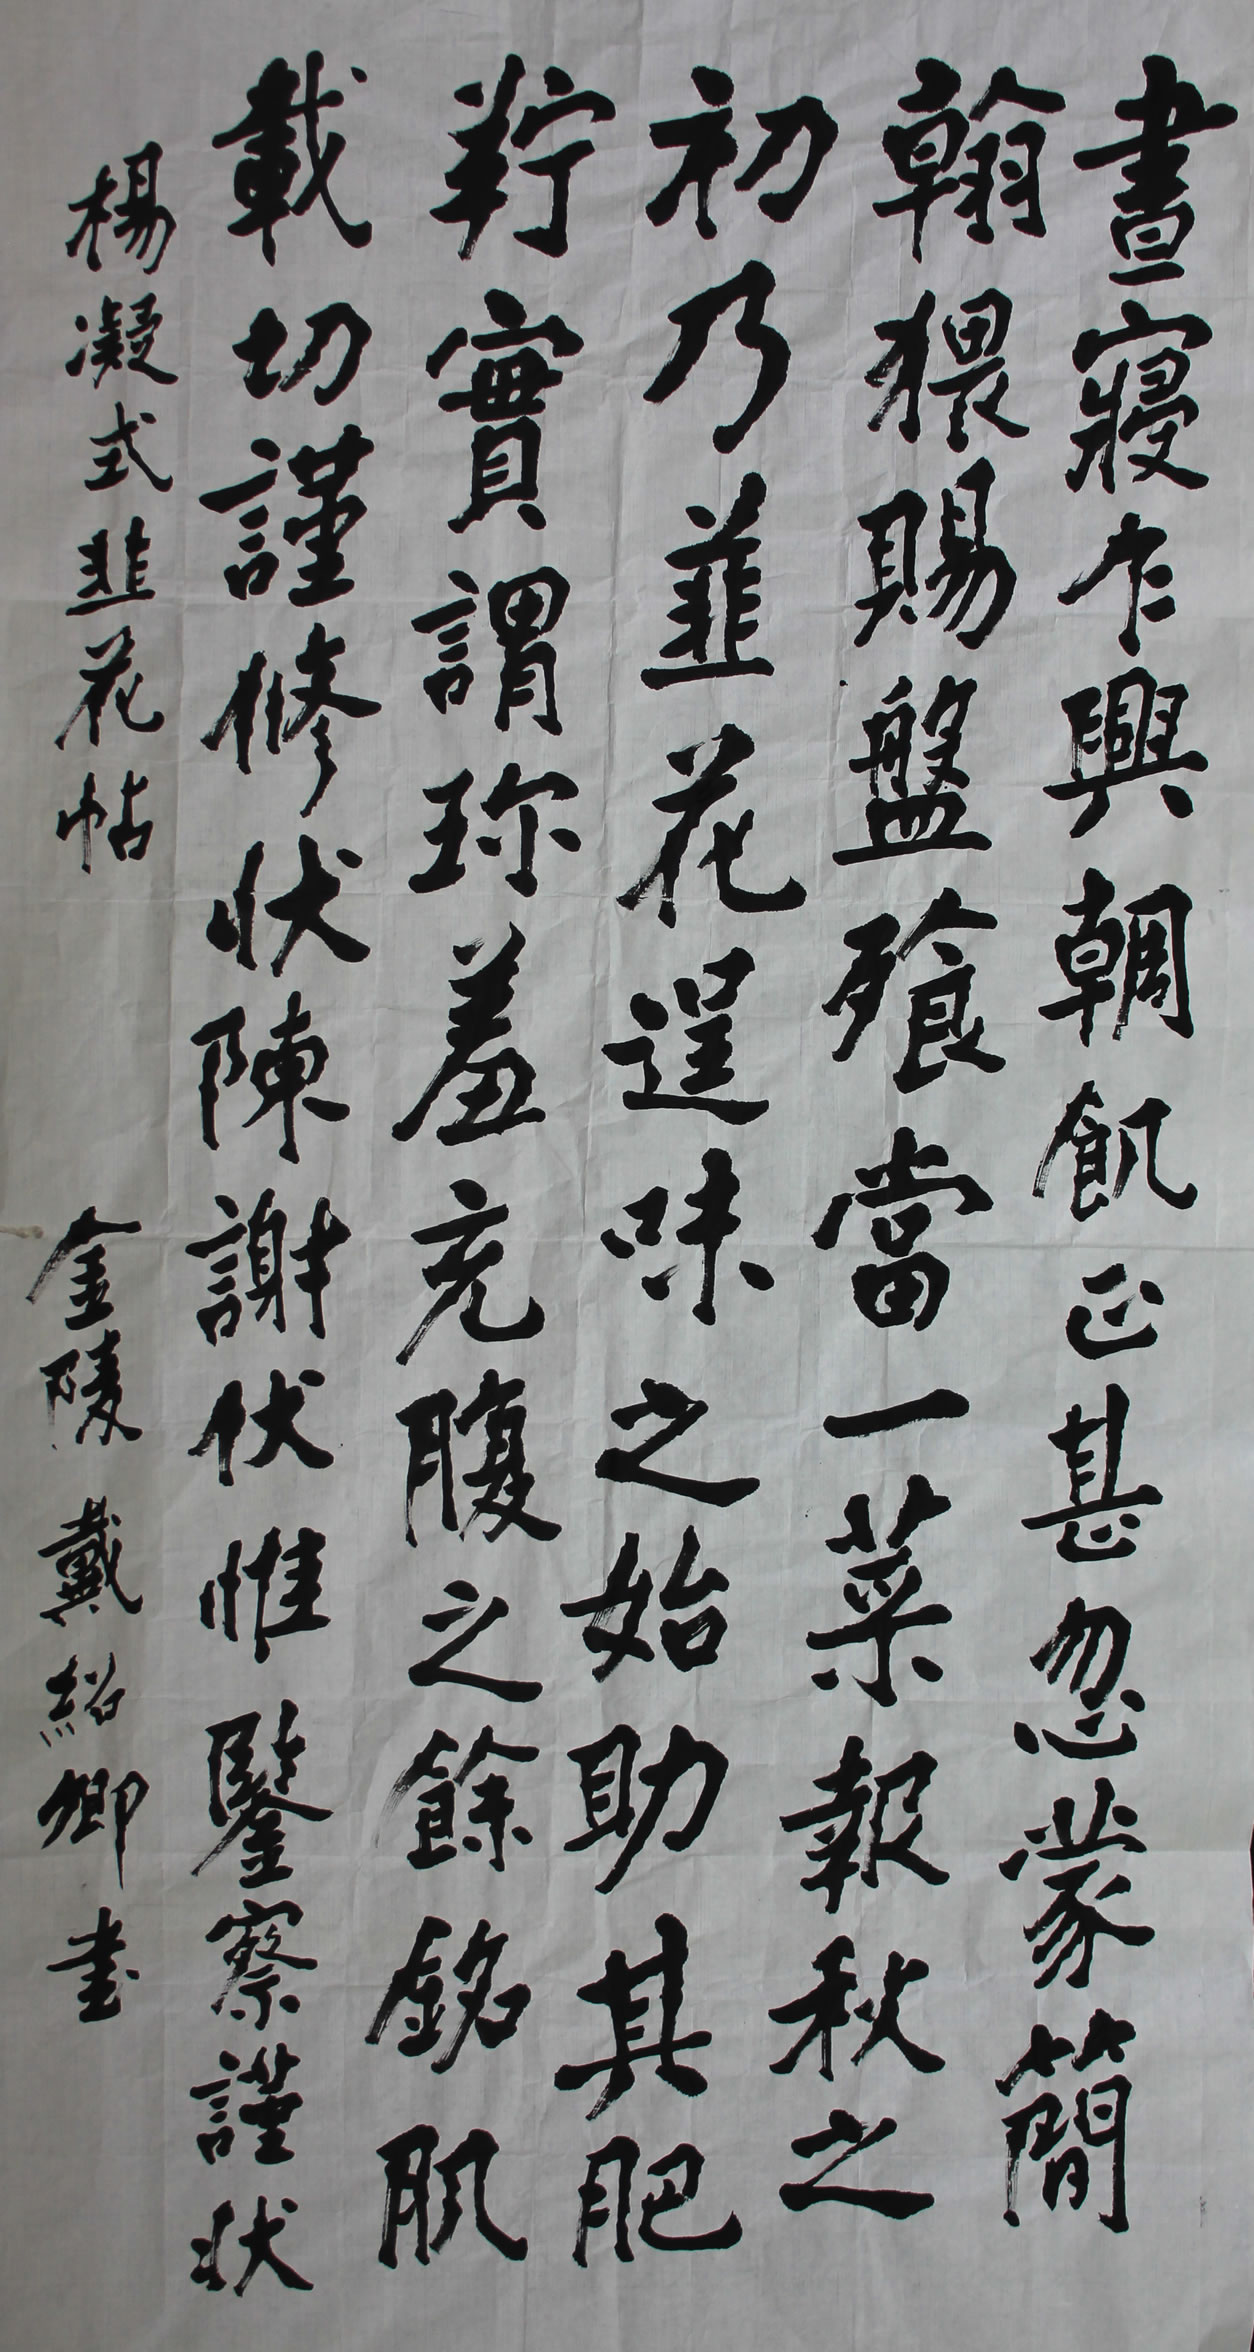 晝寢乍興朝飢正甚忽蒙簡
翰猥賜盤飧當一菜報秋之
初乃韮花逞味之始助其肥
羜實謂珎羞充腹之餘銘肌
載切謹修狀陳謝伏惟鑒察謹狀
楊凝式韭花帖
金陵戴紹卿书